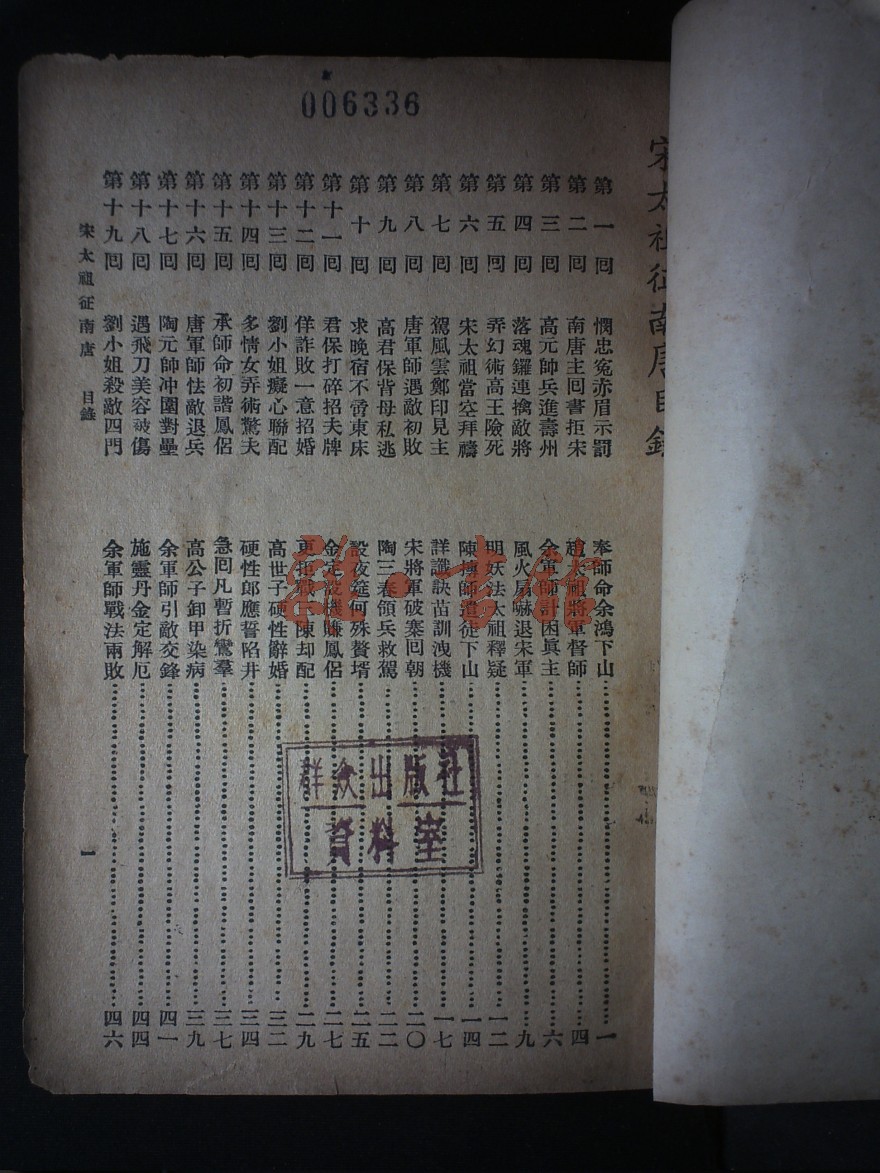 006336
宋太祖征南唐目錄
第一回 憫忠冤赤眉示罰 奉師命余鴻下山 一
第二回 南唐主囘書拒宋 趙太祖將軍督師 四
第三回 高元帥兵進壽州 余軍師計困眞主 六
第四回 落魂鑼連擒敵將 風火扇嚇退宋軍 九
第五回 弄幻術高王險死 明妖法太祖釋疑 一二
第六回 宋太祖當空拜禱 陳摶師遣徒下山 一四
第七回 駕風雲鄭印見主 詳讖訣苗訓洩機 一七
第八回 唐軍師遇敵初敗 宋將軍破寨囘朝 二〇
第九回 高君保背母私逃 陶三春領兵救駕 二二
第十回 求晚宿不啻東床 設夜筵何殊贅壻 二五
第十一回 君保打碎招夫牌 金定 機賺鳳侶 二七
第十二回 佯詐敗一意招婚 更 戰 陳却配 二九
第十三回 劉小姐癡心聯配 高世子硬性辭婚 三二
第十四回 多情女弄術驚夫 硬性郎應誓陷井 三四
第十五回 承師命初諧鳳侶 急囘凡暫折鸞羣 三七
第十六回 唐軍師怯敵退兵 高公子卸甲染病 三九
第十七回 陶元帥冲圍對壘 余軍師引敵交鋒 四一
第十八回 遇飛刀美容被傷 施靈丹金定解厄 四四
第十九回 劉小姐殺敵四門 余軍師戰法兩敗 四六
宋太祖征南唐 目錄 一
群众出版社
資料室